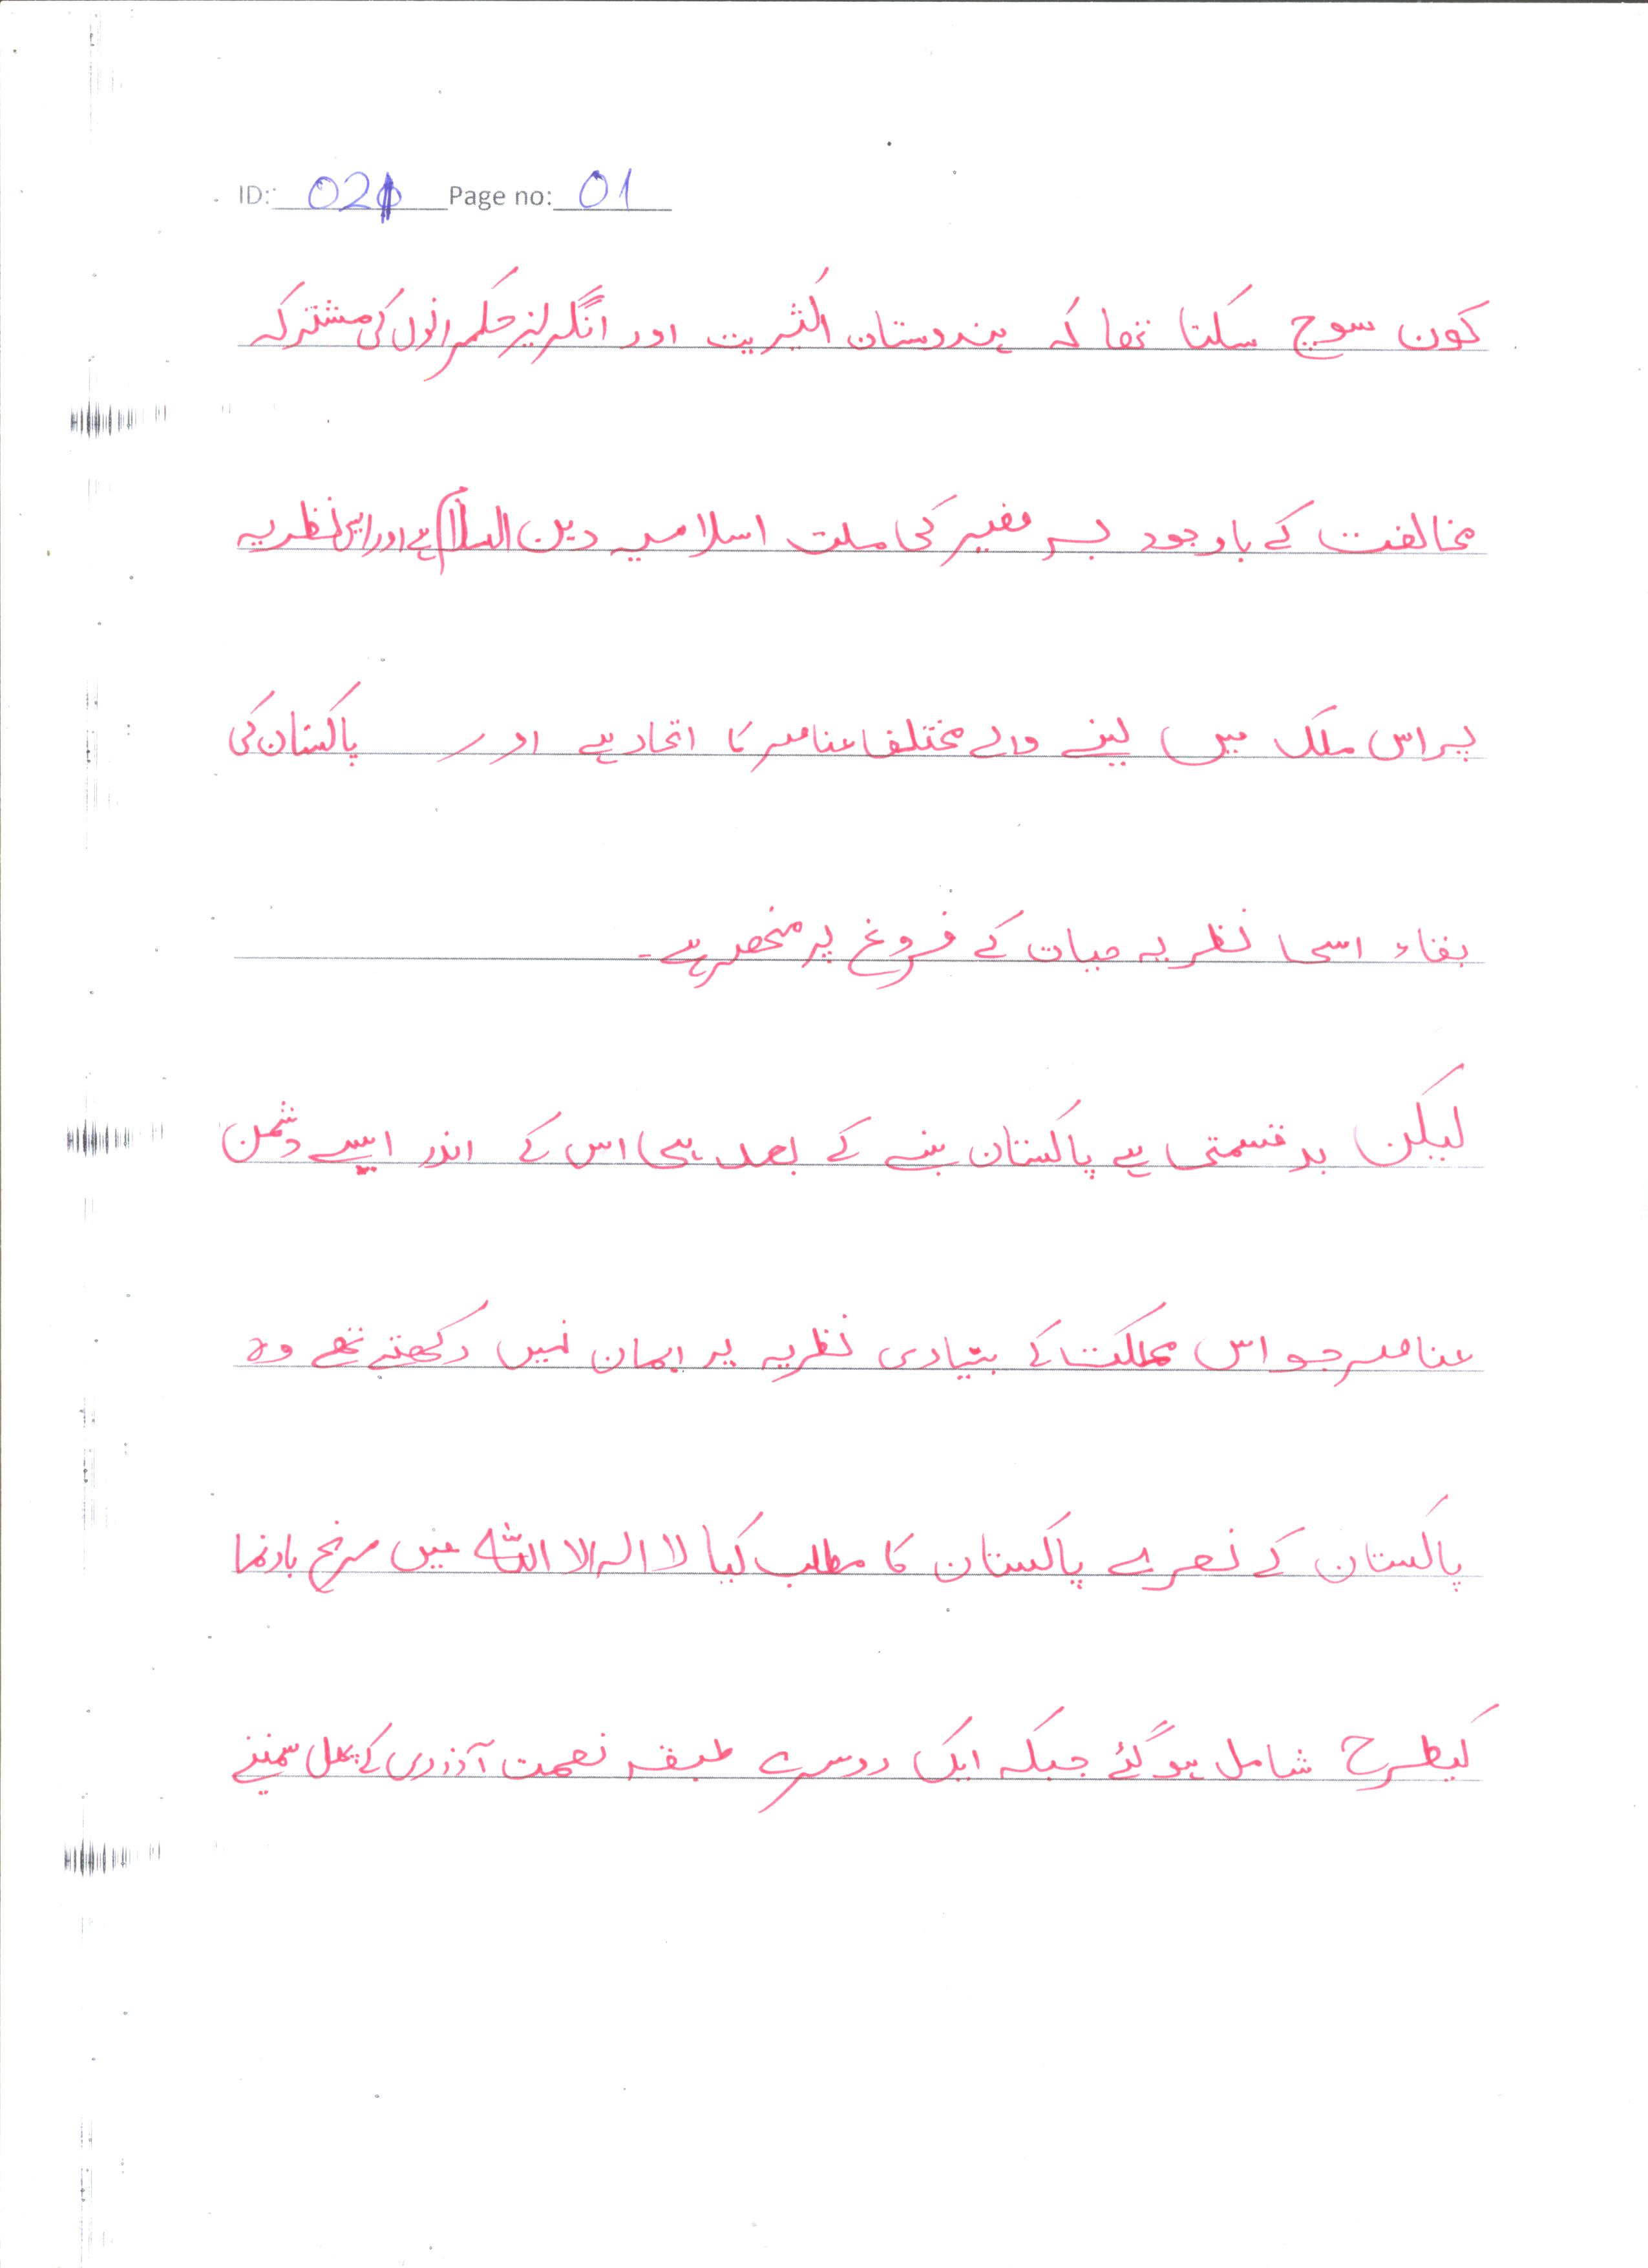 ID: 021 Page no: 01
کون سوچ سکتا تھا کہ ہندوستان اکثریت اور انگریز حکمرانوں کی مشترکہ
مخالفت کے باوجود برصغیر کی ملت اسلامیہ دین اسلام ہے اور اسی نظریہ
پر اس ملک میں بسنے والے مختلف عناصر کا اتحاد ہے اور پاکستان کی
بقاء اسی نظریہ حیات کے فروغ پر منحصر ہے۔
لیکن بدقسمتی سے پاکستان بننے کے بعد ہی اس کے اندر ایسے دشمن
عناصر جو اس مملکت کے بنیادی نظریہ پر ایمان نہیں رکھتے تھے وہ
پاکستان کے نعرے پاکستان کا مطلب کیا لا الہ الا اللہ میں مرغ بادنما
کیطرح شامل ہوگئے جبکہ ایک دوسرے طبقہ نعمت آزادی کے پھل سمیٹنے